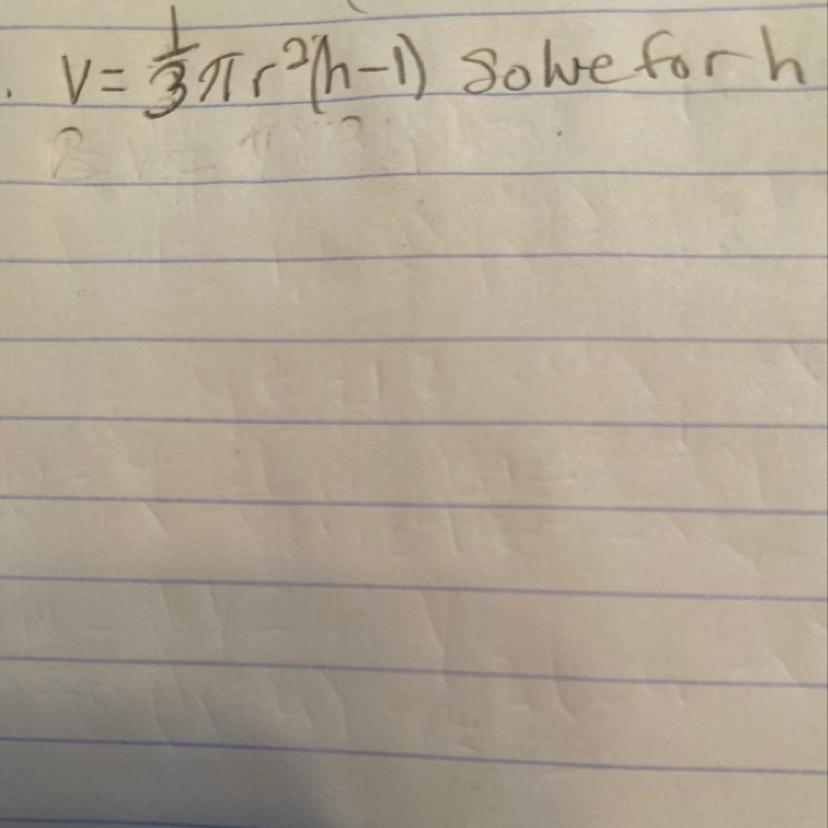 . V = 1/3 π r²(h-1) Solve for h